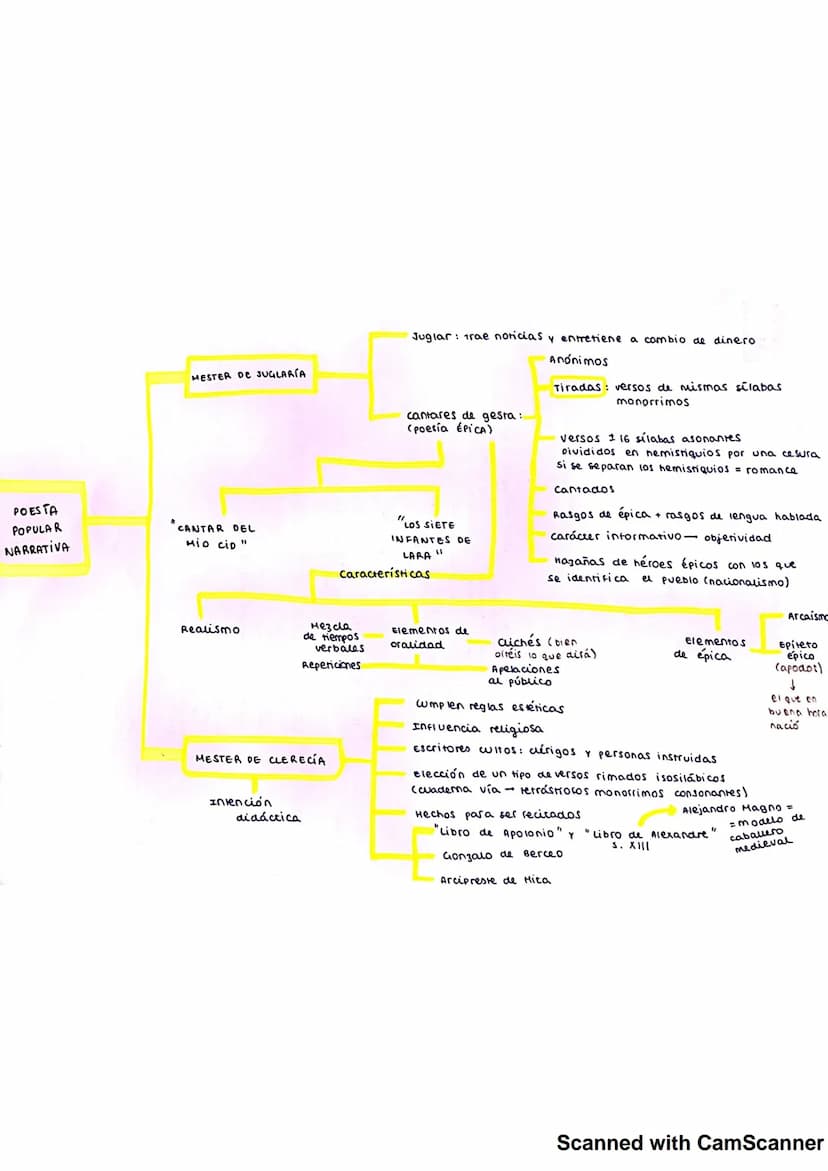 POESÍA
POPULAR
NARRATIVA
MESTER DE JUGLARÍA
Juglar: trae noticias y entretiene a cambio de dinero
cantares de gesta:
(poesía ÉPICA)
Anónimos
Tiradas: versos de mismas sílabas
monorrimos
versos ± 16 sílabas asonantes
divididos en hemistiquios por una cesura
si se separan los hemistiquios = romance
cantados
Rasgos de épica + rasgos de lengua hablada
carácter informativo → objetividad
Hazañas de héroes épicos con los que
se identifica el pueblo (nacionalismo)
"CANTAR DEL
MIO CID"
"LOS SIETE
INFANTES DE
LARA"
Características
Realismo
Mezcla
de tiempos
verbales
Repeticiones
Elementos de
oralidad
Clichés (bien
oiréis lo que dirá)
Apelaciones
al público
Elementos
de épica
Arcaísmo
Epíteto
épico
(apodos)
↓
el que en
buena hora
nació
MESTER DE CLERECÍA
Intención
didáctica
Cumplen reglas estéticas
Influencia religiosa
Escritores cultos: clérigos y personas instruidas
elección de un tipo de versos rimados isosilábicos
(cuaderna vía → tetrástrofos monorrimos consonantes)
Hechos para ser recitados
"Libro de Apolonio" y "Libro de Alexandre"
s. XIII
Alejandro Magno =
= modelo de
caballero
medieval
Gonzalo de Berceo
Arcipreste de Hita
Scanned with CamScanner